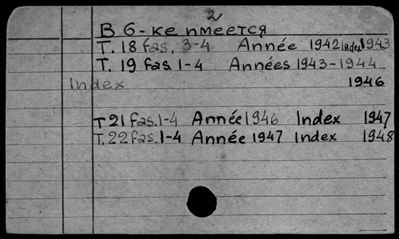 2
В б-ке имеется
T. 18 fas. 3-4 Année 1942 Index 1943
T. 19 fas. 1-4 Années 1943-1944
Index 1946
T 21 fas. 1-4 Année 1946 Index 1947
T. 22 fas. 1-4 Année 1947 Index 1948